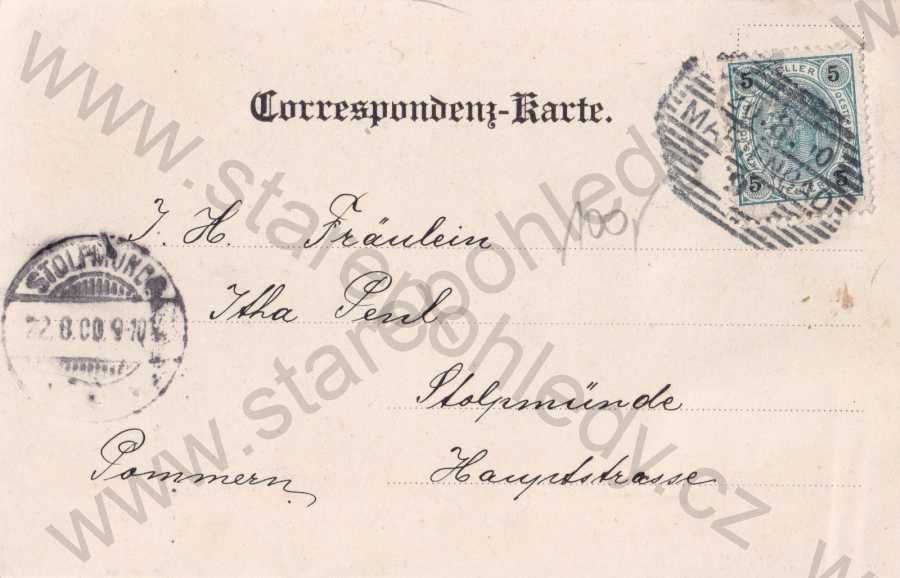 Correspondenz-Karte.
5 HELLER 5
5 5
100,
I. H. Fräulein
STOLPMÜNDE
22.8.00.9-10
Itha Penl
Stolpmünde
Pommern
Hauptstrasse
www.starepohledy.cz
www.starepohledy.cz